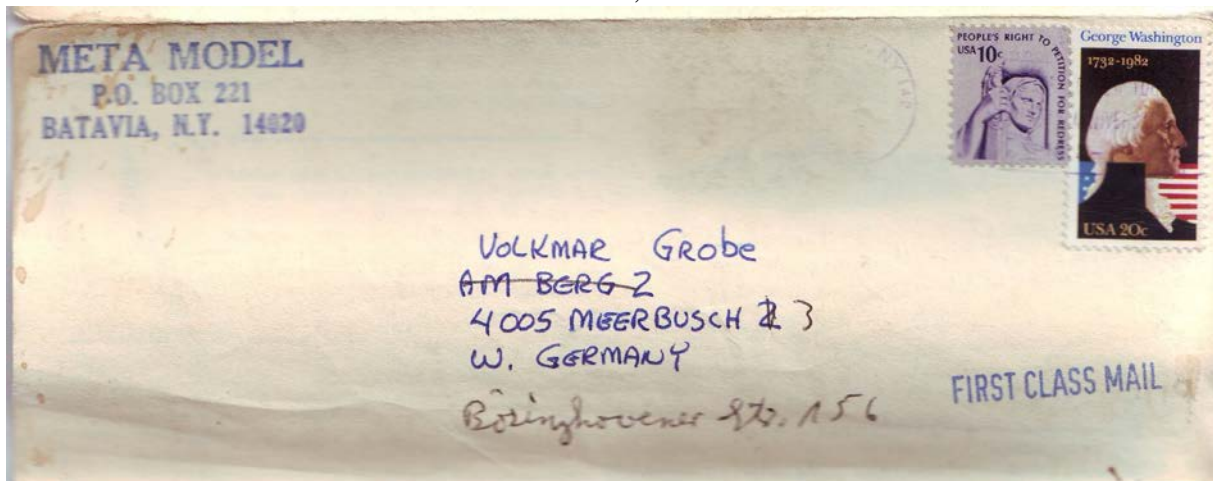 META MODEL
P.O. BOX 221
BATAVIA, N.Y. 14020
PEOPLE'S RIGHT TO PETITION FOR REDRESS
USA 10c
George Washington
1732-1982
USA 20c
VOLKMAR GRObe
AM BERG 2
4005 MEERBUSCH 3
W. GERMANY
Bösinghovener Str. 156
FIRST CLASS MAIL